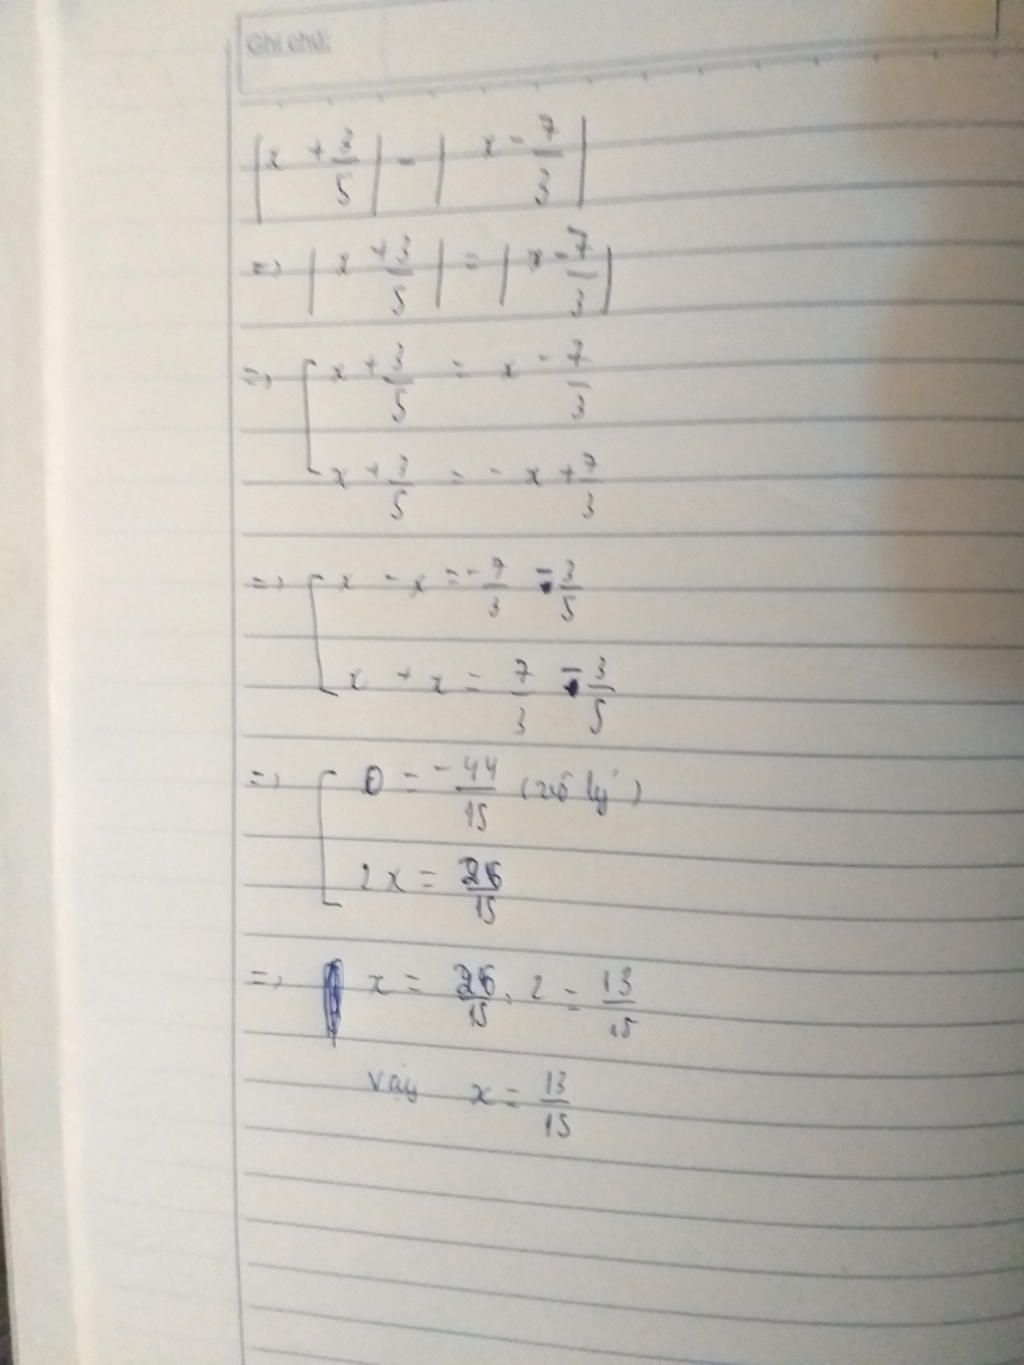 Ghi chú:
|x + 3/5| - | x - 7/3 |
=> | x + 3/5 | = | x - 7/3 |
=> [ x + 3/5 = x - 7/3
x + 3/5 = - x + 7/3
=> [ x - x = - 7/3 - 3/5
x + x = 7/3 - 3/5
=> [ 0 = - 44/15 (vô lý)
2x = 26/15
=> x = 26/15 : 2 = 13/15
Vậy x = 13/15